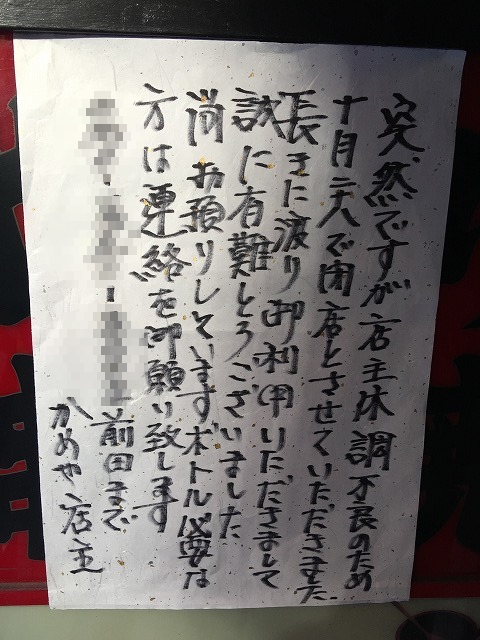 突然ですが店主体調不良のため
十月二十八で閉店とさせていただきました
長きに渡り御利用いただきまして
誠に有難とろございました
尚お預りしていますボトル必要な
方は連絡を御願い致します
前田まで
かめや店主